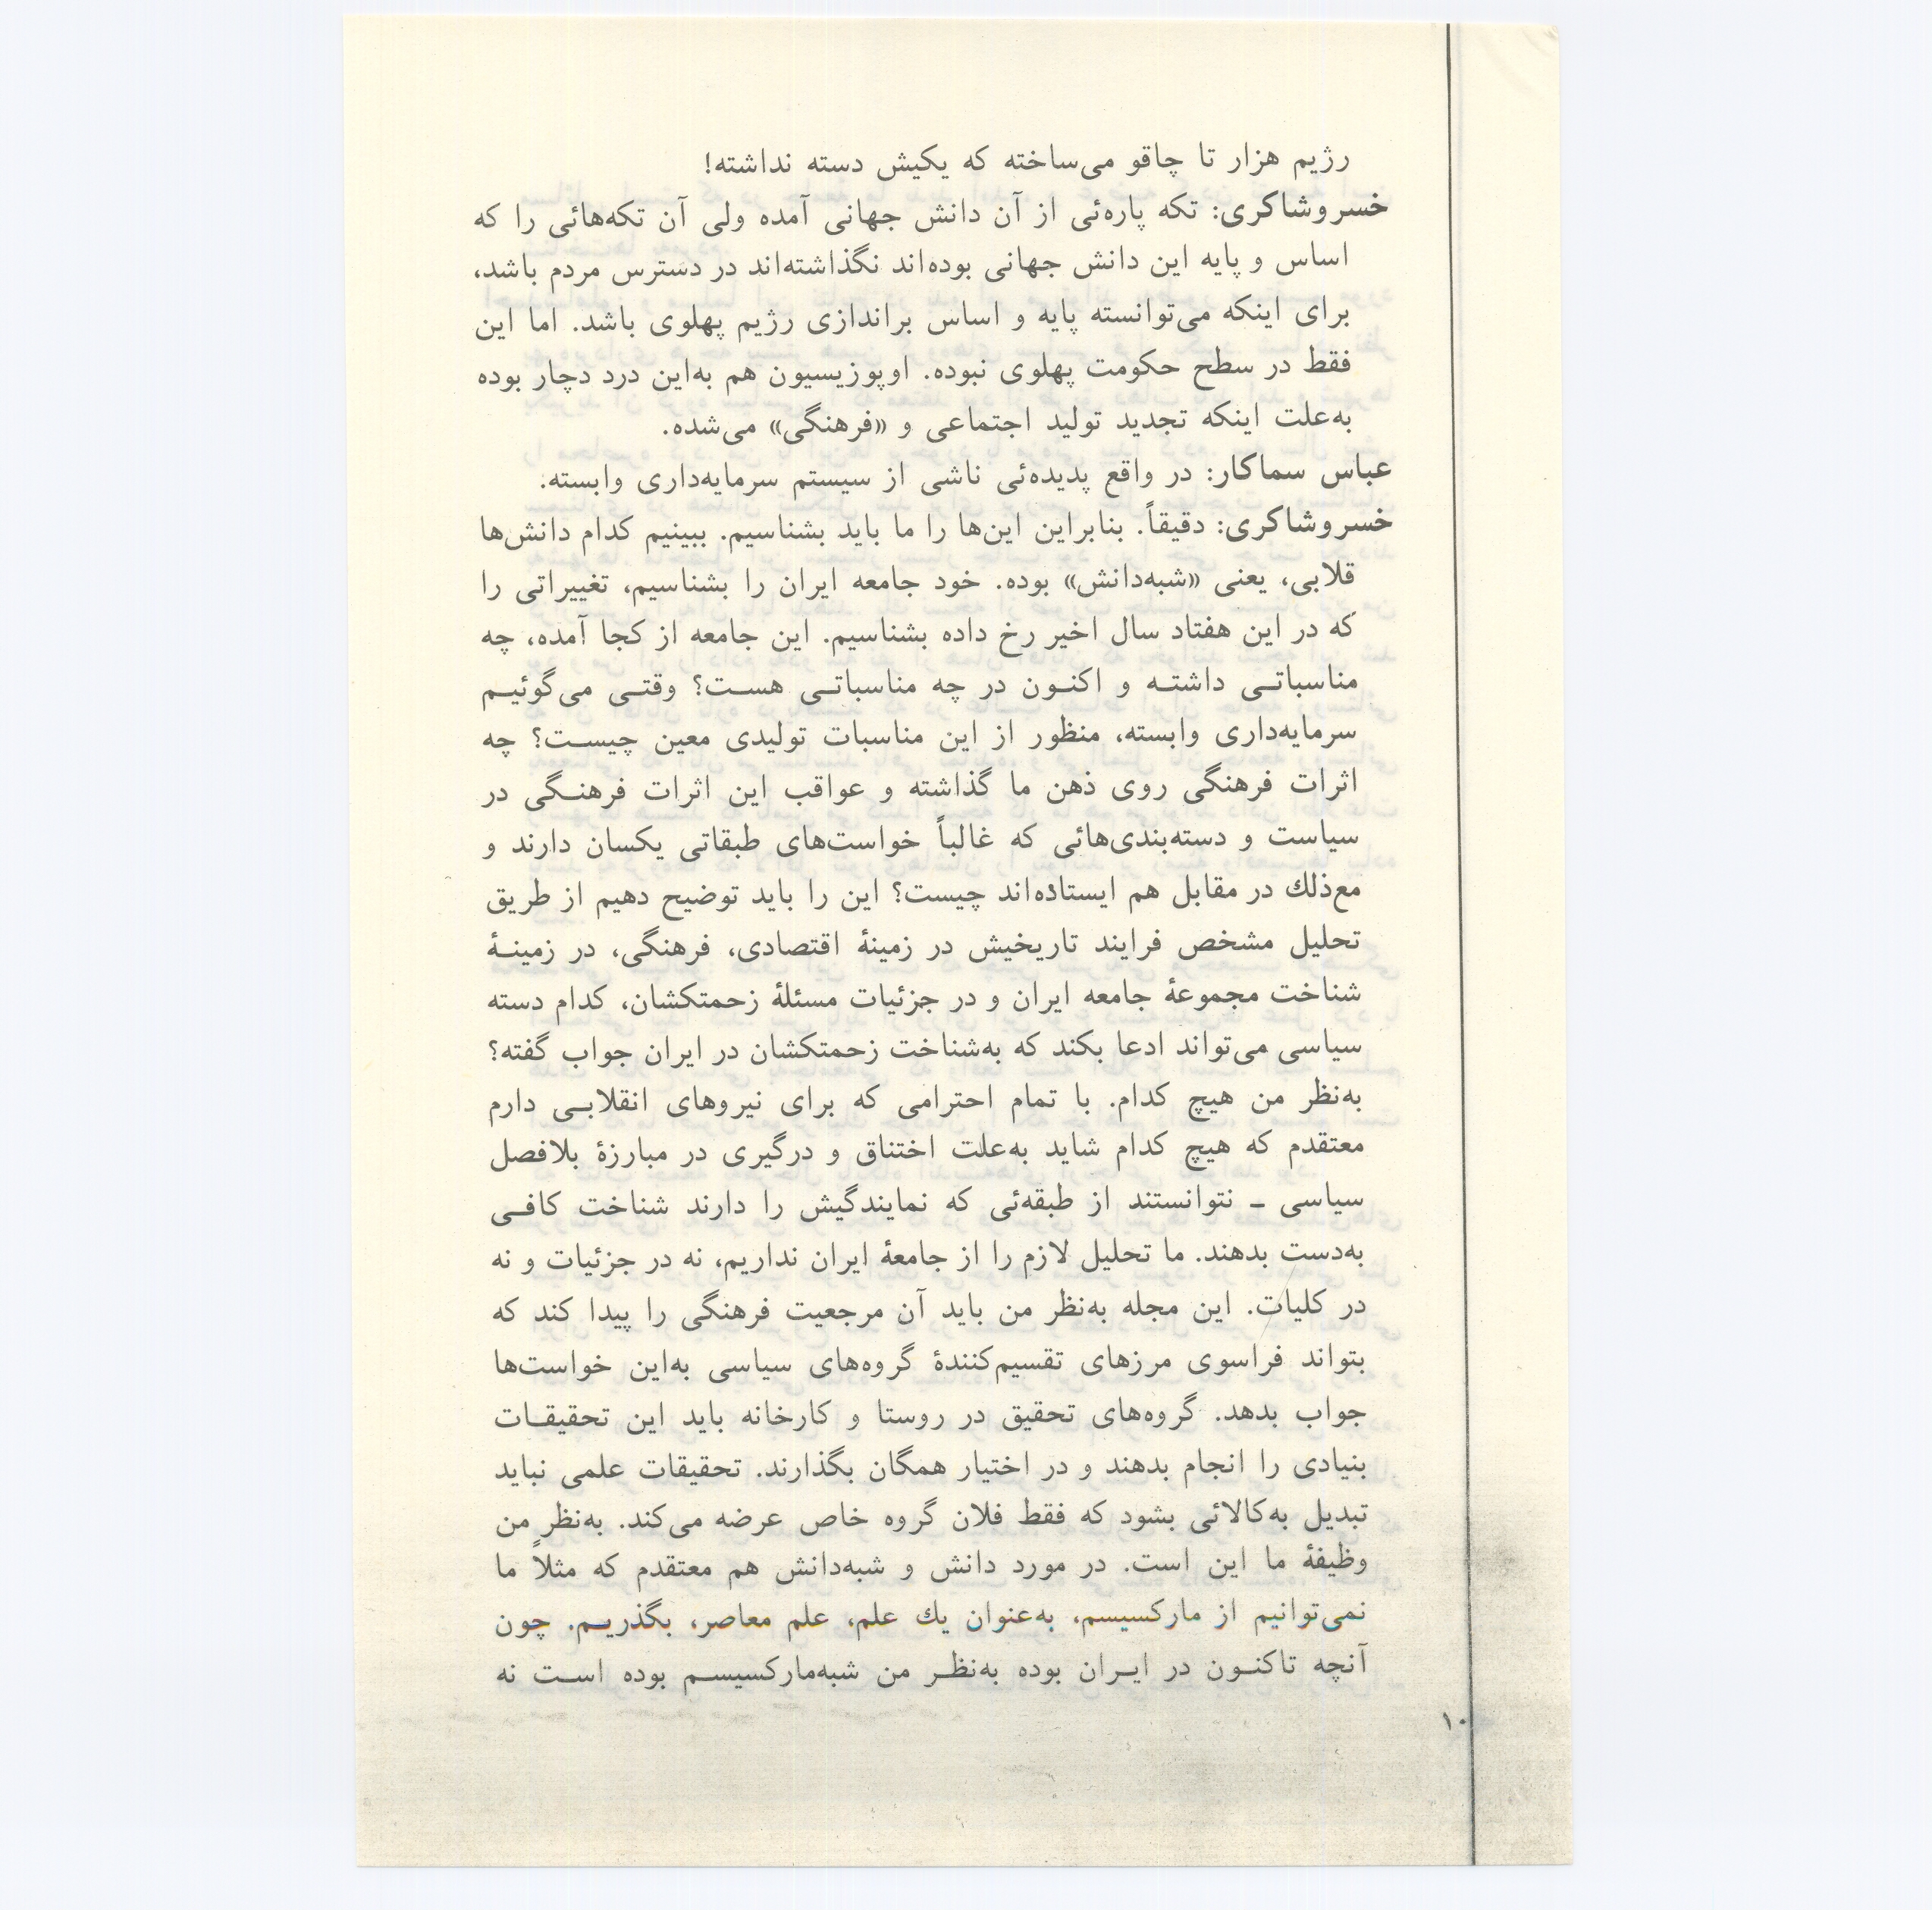 رژیم هزار تا چاقو می‌ساخته که یکیش دسته نداشته!
خسروشاکری: تکه پاره‌ئی از آن دانش جهانی آمده ولی آن تکه‌هائی را که
اساس و پایه این دانش جهانی بوده‌اند نگذاشته‌اند در دسترس مردم باشد،
برای اینکه می‌توانسته پایه و اساس براندازی رژیم پهلوی باشد. اما این
فقط در سطح حکومت پهلوی نبوده. اوپوزیسیون هم به‌این درد دچار بوده
به‌علت اینکه تجدید تولید اجتماعی و «فرهنگی» می‌شده.
عباس سماکار: در واقع پدیده‌ئی ناشی از سیستم سرمایه‌داری وابسته.
خسروشاکری: دقیقاً. بنابراین این‌ها را ما باید بشناسیم. ببینیم کدام دانش‌ها
قلابی، یعنی «شبه‌دانش» بوده. خود جامعه ایران را بشناسیم، تغییراتی را
که در این هفتاد سال اخیر رخ داده بشناسیم. این جامعه از کجا آمده، چه
مناسباتـی داشتـه و اکنـون در چه مناسباتـی هسـت؟ وقتـی می‌گوئیـم
سرمایه‌داری وابسته، منظور از این مناسبات تولیدی معین چیسـت؟ چه
اثرات فرهنگی روی ذهن ما گذاشته و عواقب این اثرات فرهنـگی در
سیاست و دسته‌بندی‌هائی که غالباً خواست‌های طبقاتی یکسان دارند و
مع‌ذلك در مقابل هم ایستاده‌اند چیست؟ این را باید توضیح دهیم از طریق
تحلیل مشخص فرایند تاریخیش در زمینهٔ اقتصادی، فرهنگی، در زمینـهٔ
شناخت مجموعهٔ جامعه ایران و در جزئیات مسئلهٔ زحمتکشان، کدام دسته
سیاسی می‌تواند ادعا بکند که به‌شناخت زحمتکشان در ایران جواب گفته؟
به‌نظر من هیچ کدام. با تمام احترامی که برای نیروهای انقلابـی دارم
معتقدم که هیچ کدام شاید به‌علت اختناق و درگیری در مبارزهٔ بلافصل
سیاسی ـ نتوانستند از طبقه‌ئی که نمایندگیش را دارند شناخت کافـی
به‌دست بدهند. ما تحلیل لازم را از جامعهٔ ایران نداریم، نه در جزئیات و نه
در کلیات. این مجله به‌نظر من باید آن مرجعیت فرهنگی را پیدا کند که
بتواند فراسوی مرزهای تقسیم‌کنندهٔ گروه‌های سیاسی به‌این خواست‌ها
جواب بدهد. گروه‌های تحقیق در روستا و کارخانه باید این تحقیقـات
بنیادی را انجام بدهند و در اختیار همگان بگذارند. تحقیقات علمی نباید
تبدیل به‌کالائی بشود که فقط فلان گروه خاص عرضه می‌کند. به‌نظر من
وظیفهٔ ما این است. در مورد دانش و شبه‌دانش هم معتقدم که مثلاً ما
نمی‌توانیم از مارکسیسم، به‌عنوان یك علم، علم معاصر، بگذریـم. چون
آنچه تاکنـون در ایـران بوده به‌نظـر من شبه‌مارکسیسـم بوده اسـت نه
۱۰